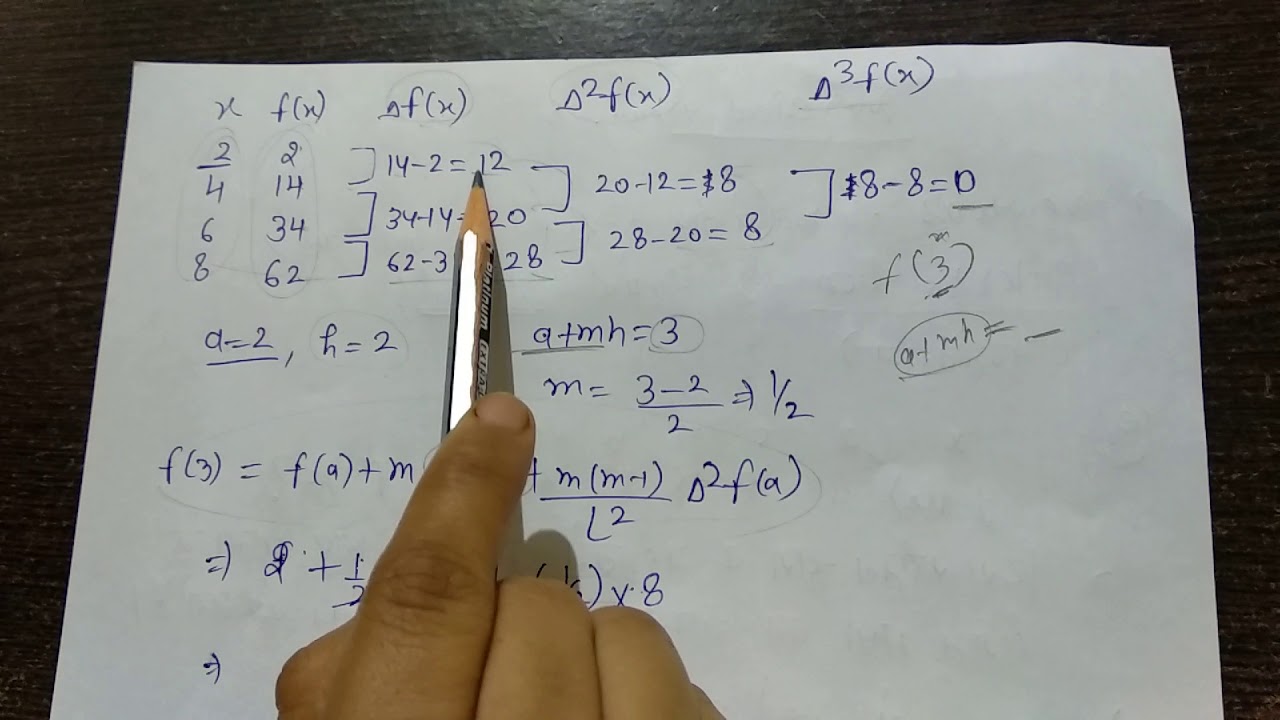 x f(x) Δf(x) Δ²f(x) Δ³f(x)
2 2 14-2=12 20-12=8 8-8=0
4 14 34-14=20 28-20=8
6 34 62-3 28
8 62
f(3)
a=2, h=2 a+mh=3 a+mh=-
m= 3-2/2 ⇒ 1/2
f(3) = f(a)+m + m(m-1)/⌊2 Δ²f(a)
⇒ 2 + 1/2 ) x 8
⇒
Platinum